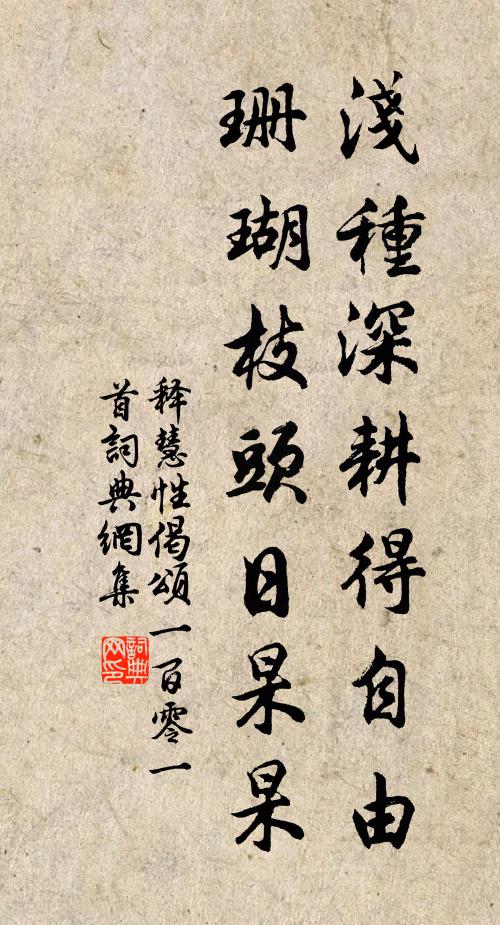 淺種深耕得自由
珊瑚枝頭日杲杲
释慧性偈頌一百零一
首詞典網集
詞典
网印